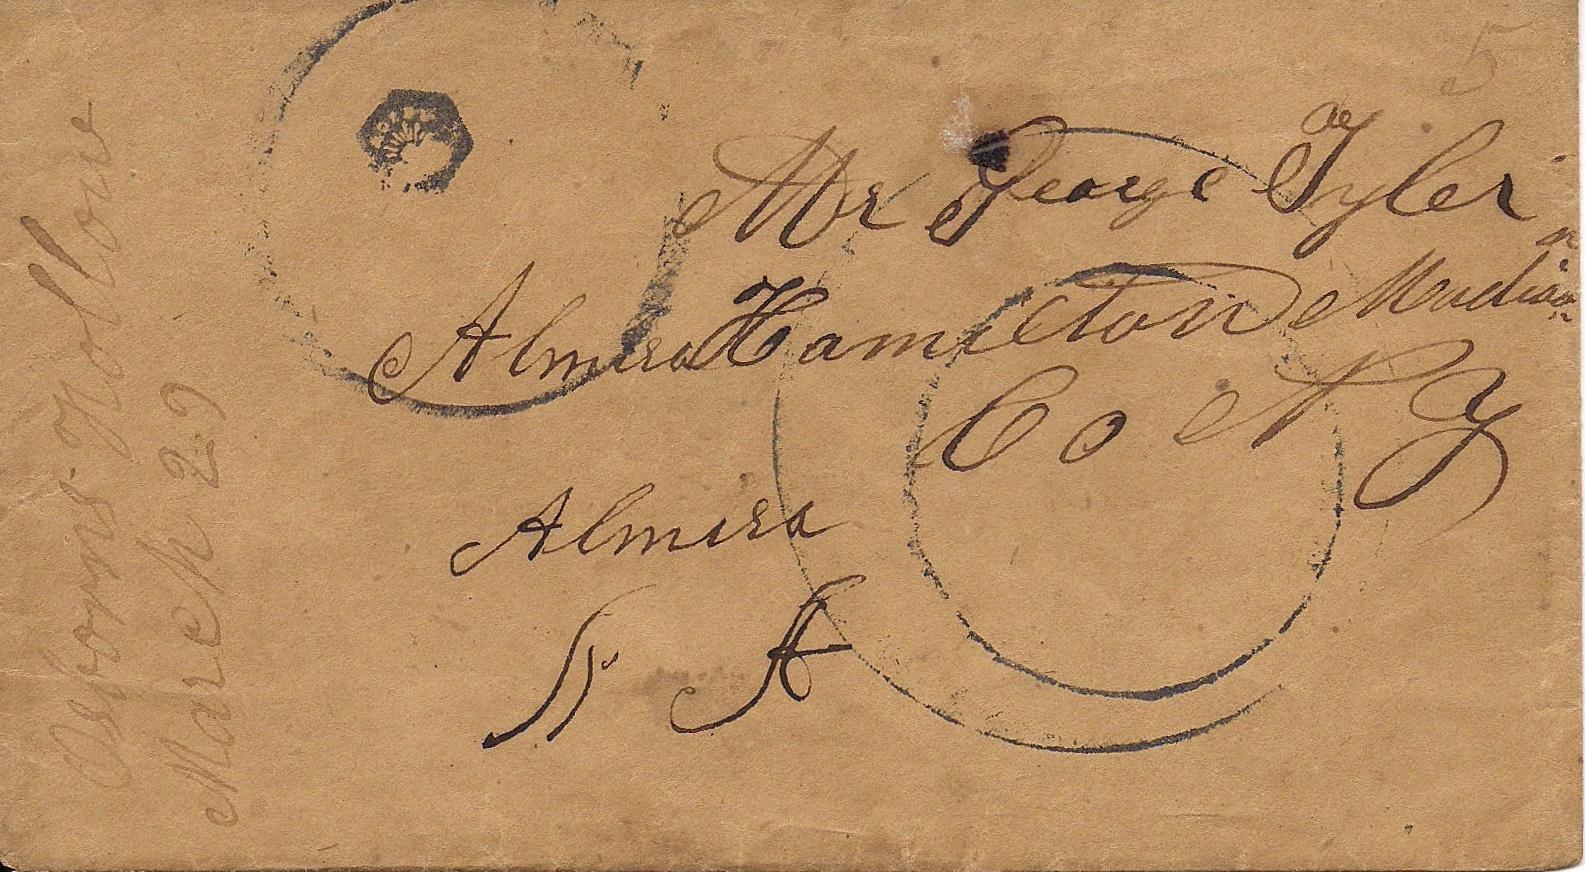 5
Mr George Tyler
Almira Hamilton Madison
Co N Y
Almira
Osborns Hollow
March 29